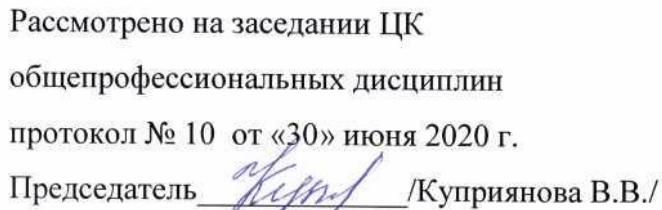 Рассмотрено на заседании ЦК
общепрофессиональных дисциплин
протокол № 10 от «30» июня 2020 г.
Председатель______________/Куприянова В.В./